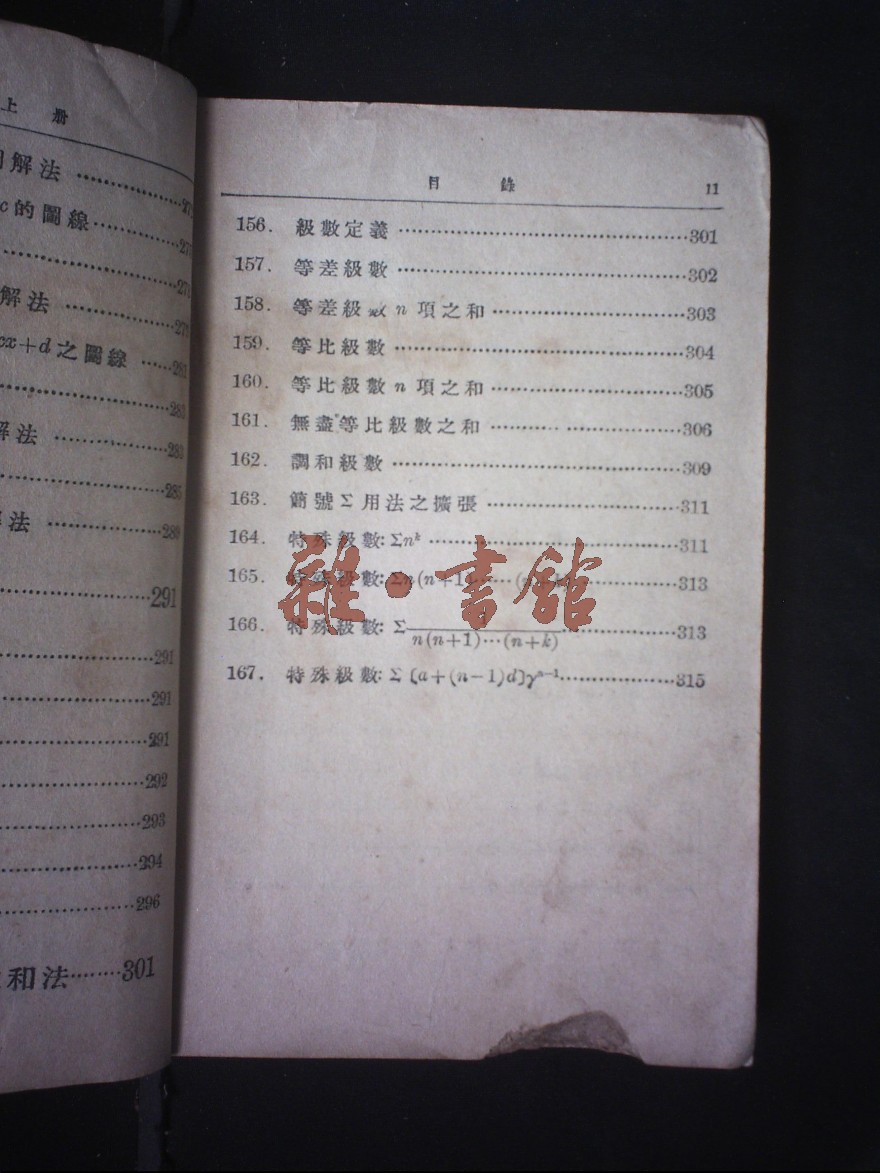 上 册
解法
c的圖線
解法
cx+d之圖線
解法
解法
291
291
291
291
292
293
294
296
和法……301
目 錄 11
156. 級數定義……301
157. 等差級數……302
158. 等差級數n項之和……303
159. 等比級數……304
160. 等比級數n項之和……305
161. 無盡等比級數之和……306
162. 調和級數……309
163. 簡號Σ用法之擴張……311
164. 特殊級數:Σnᵏ……311
165. 特殊級數:Σn(n+1)……313
166. 特殊級數:Σ 1/n(n+1)…(n+k)……313
167. 特殊級數:Σ〔a+(n−1)d〕γⁿ⁻¹……315
雜·書館